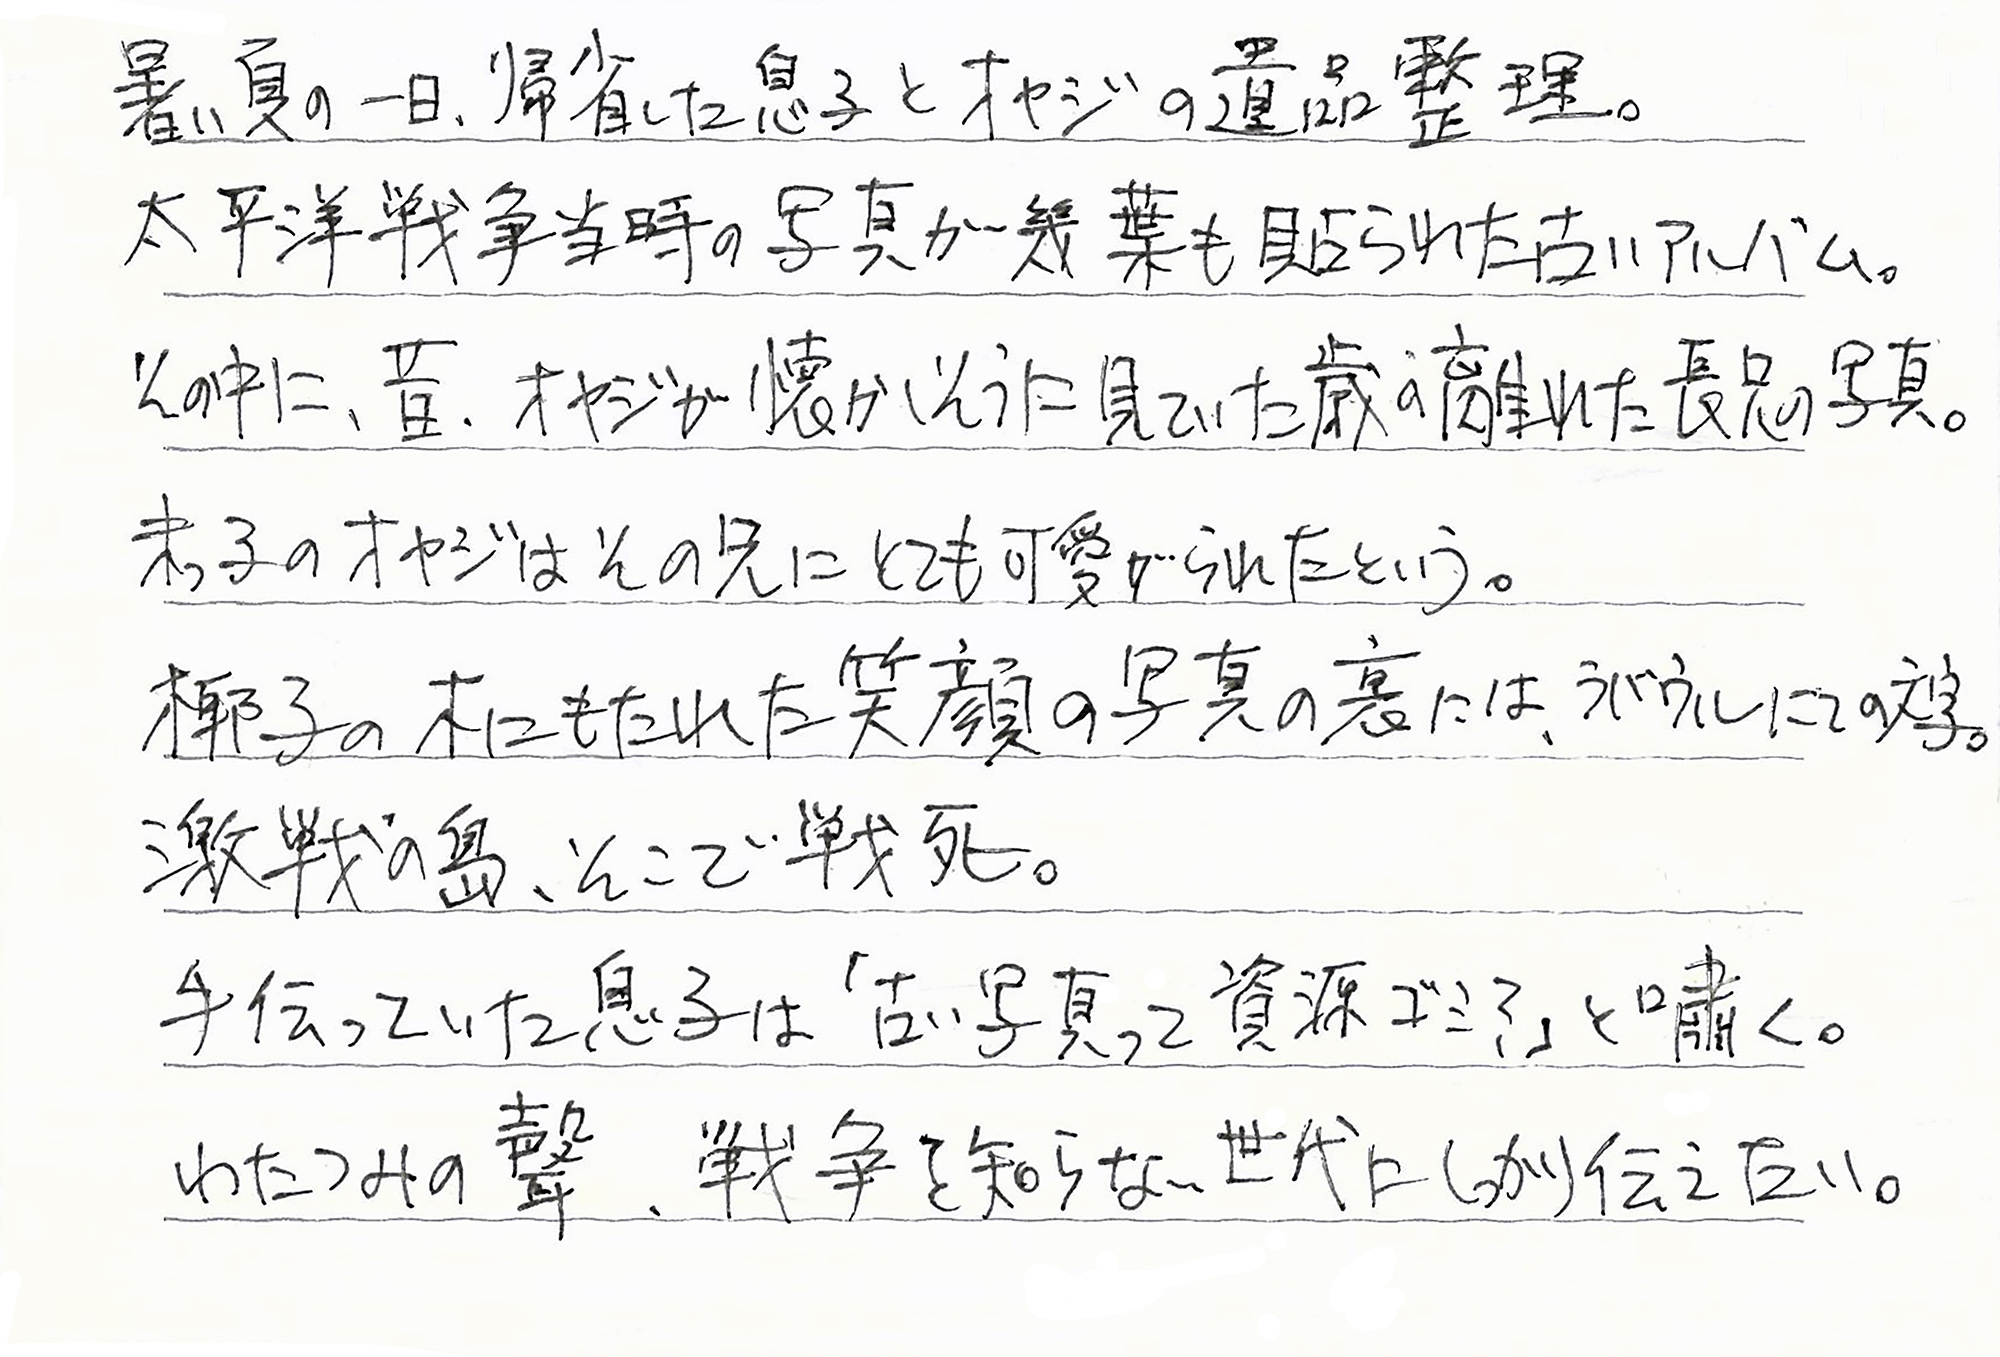 暑い夏の一日、帰省した息子とオヤジの遺品整理。
太平洋戦争当時の写真が幾葉も貼られた古いアルバム。
その中に、昔、オヤジが懐かしそうに見ていた歳の離れた長兄の写真。
末っ子のオヤジはその兄にとても可愛がられたという。
椰子の木にもたれた笑顔の写真の裏には、ラバウルにての文字。
激戦の島、そこで戦死。
手伝っていた息子は「古い写真って資源ゴミ？」と嘯く。
わたつみの聲、戦争を知らない世代にしっかり伝えたい。